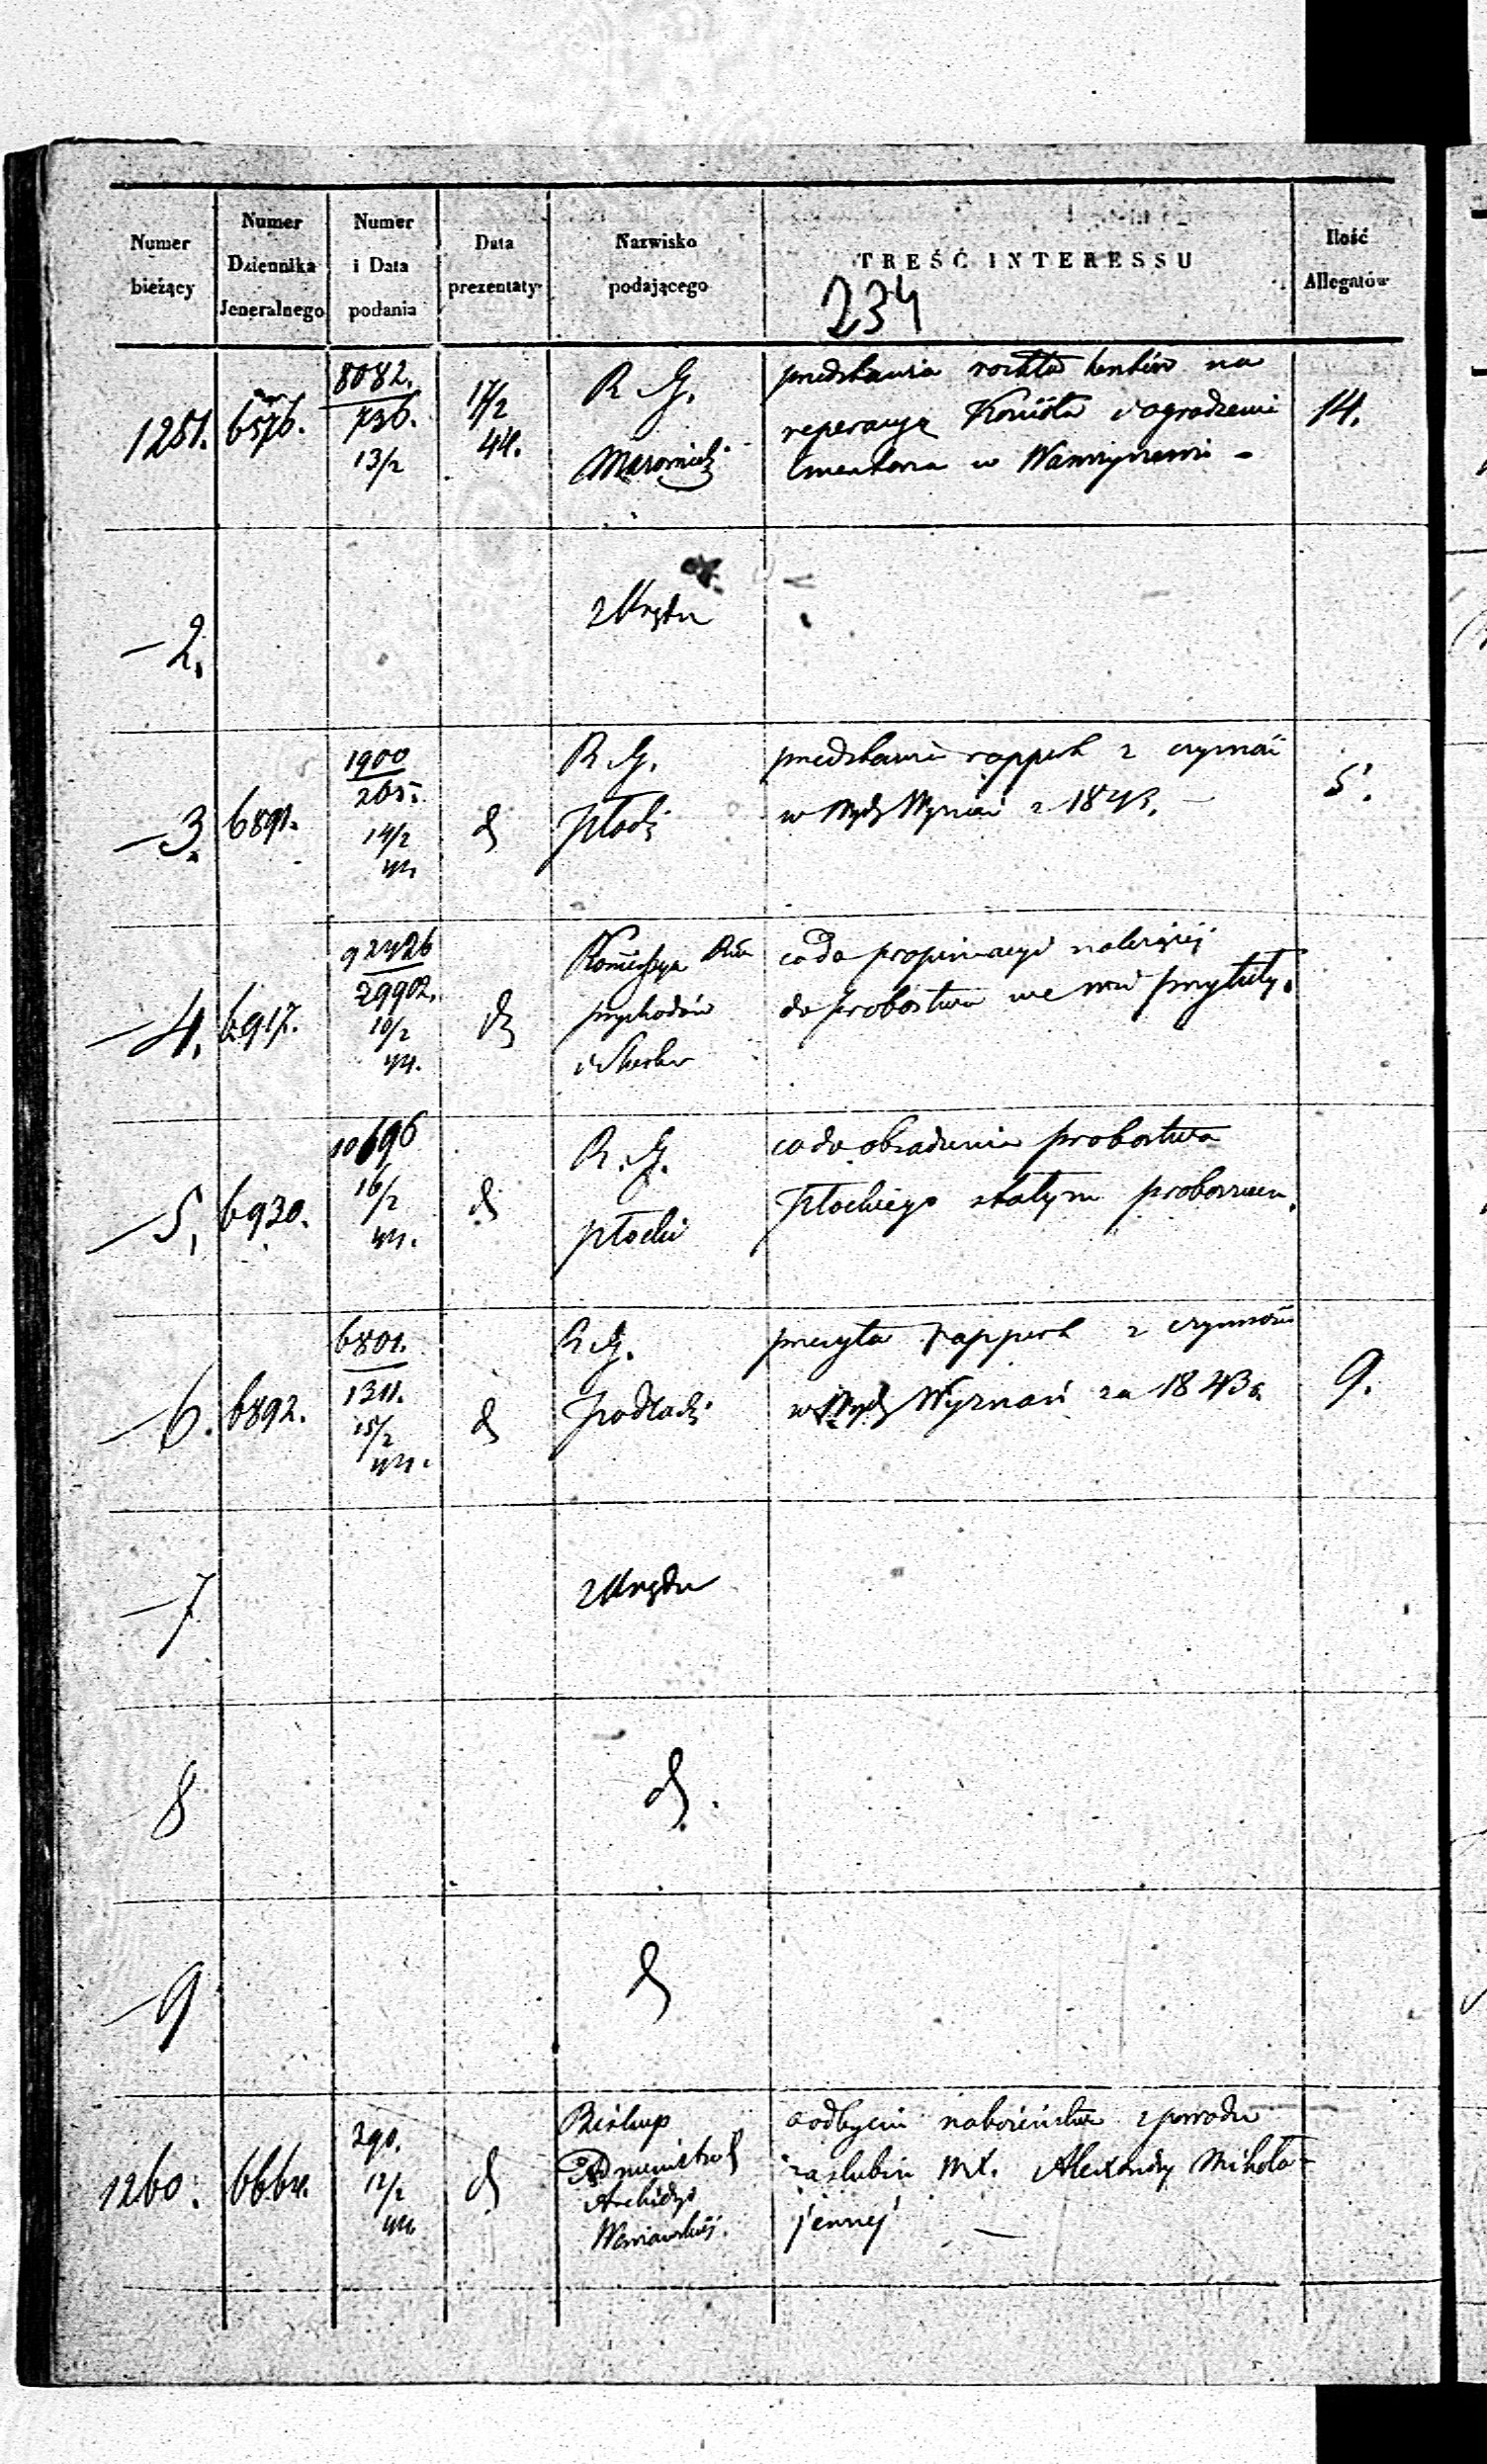 Numer bieżący
Numer Dziennika Jeneralnego
Numer i Data podania
Data prezentaty
Nazwisko podającego
TREŚĆ INTERESSU
Ilość Allegatów
234
1251. 6576. 8082. 736. 13/2 17/2 44. R. G. Mazowiecki 14.
przedstawia rozkład kosztów na
reperacyę Kościoła i ogrodzenie
Cmentarza w
— 2. z Urzędu
— 3. 6891. 1900 265. 14/2 44. d R. G. Płocki 5.
przedstawia rapport z czynności
w Wydz Wyznań z 1843. —
— 4. 6917. 92426 29902. 10/2 44. d Kommissya Rzą
przychodów
i Skarbu
co do propinacyi należącej
do probostwa we wsi Przytuły.
— 5. 6930. 10696 16/2 44. d R. G. Płocki
co do obsadzenia probostwa
Płockiego stałym proboszczem.
— 6. 6892. 6801. 1311. 15/2 44. d R. G. Podlaski 9.
przesyła rapport z czynności
w Wydz Wyznań za 1843 r.
— 7 z Urzędu
8 d.
— 9 d
1260. 290. 12/2 44. d Biskup
Administrat
Archidyec
Warszawskiej.
o odbyciu nabożeństwa z powodu
zaślubin Alexandry Mikoła-
jewnej —